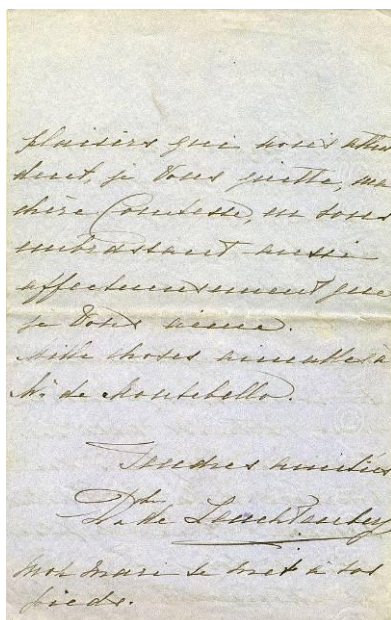 plaisirs qui nous atten
dent, je vous quitte, ma
chère Comtesse, en vous
embrassant aussi
affectueusement que
je vous aime.
Mille choses aimables à
Mr de Montebello.
Tendres amitiés
Dsse de Leuchtenberg
Mon mari se met à vos
pieds.